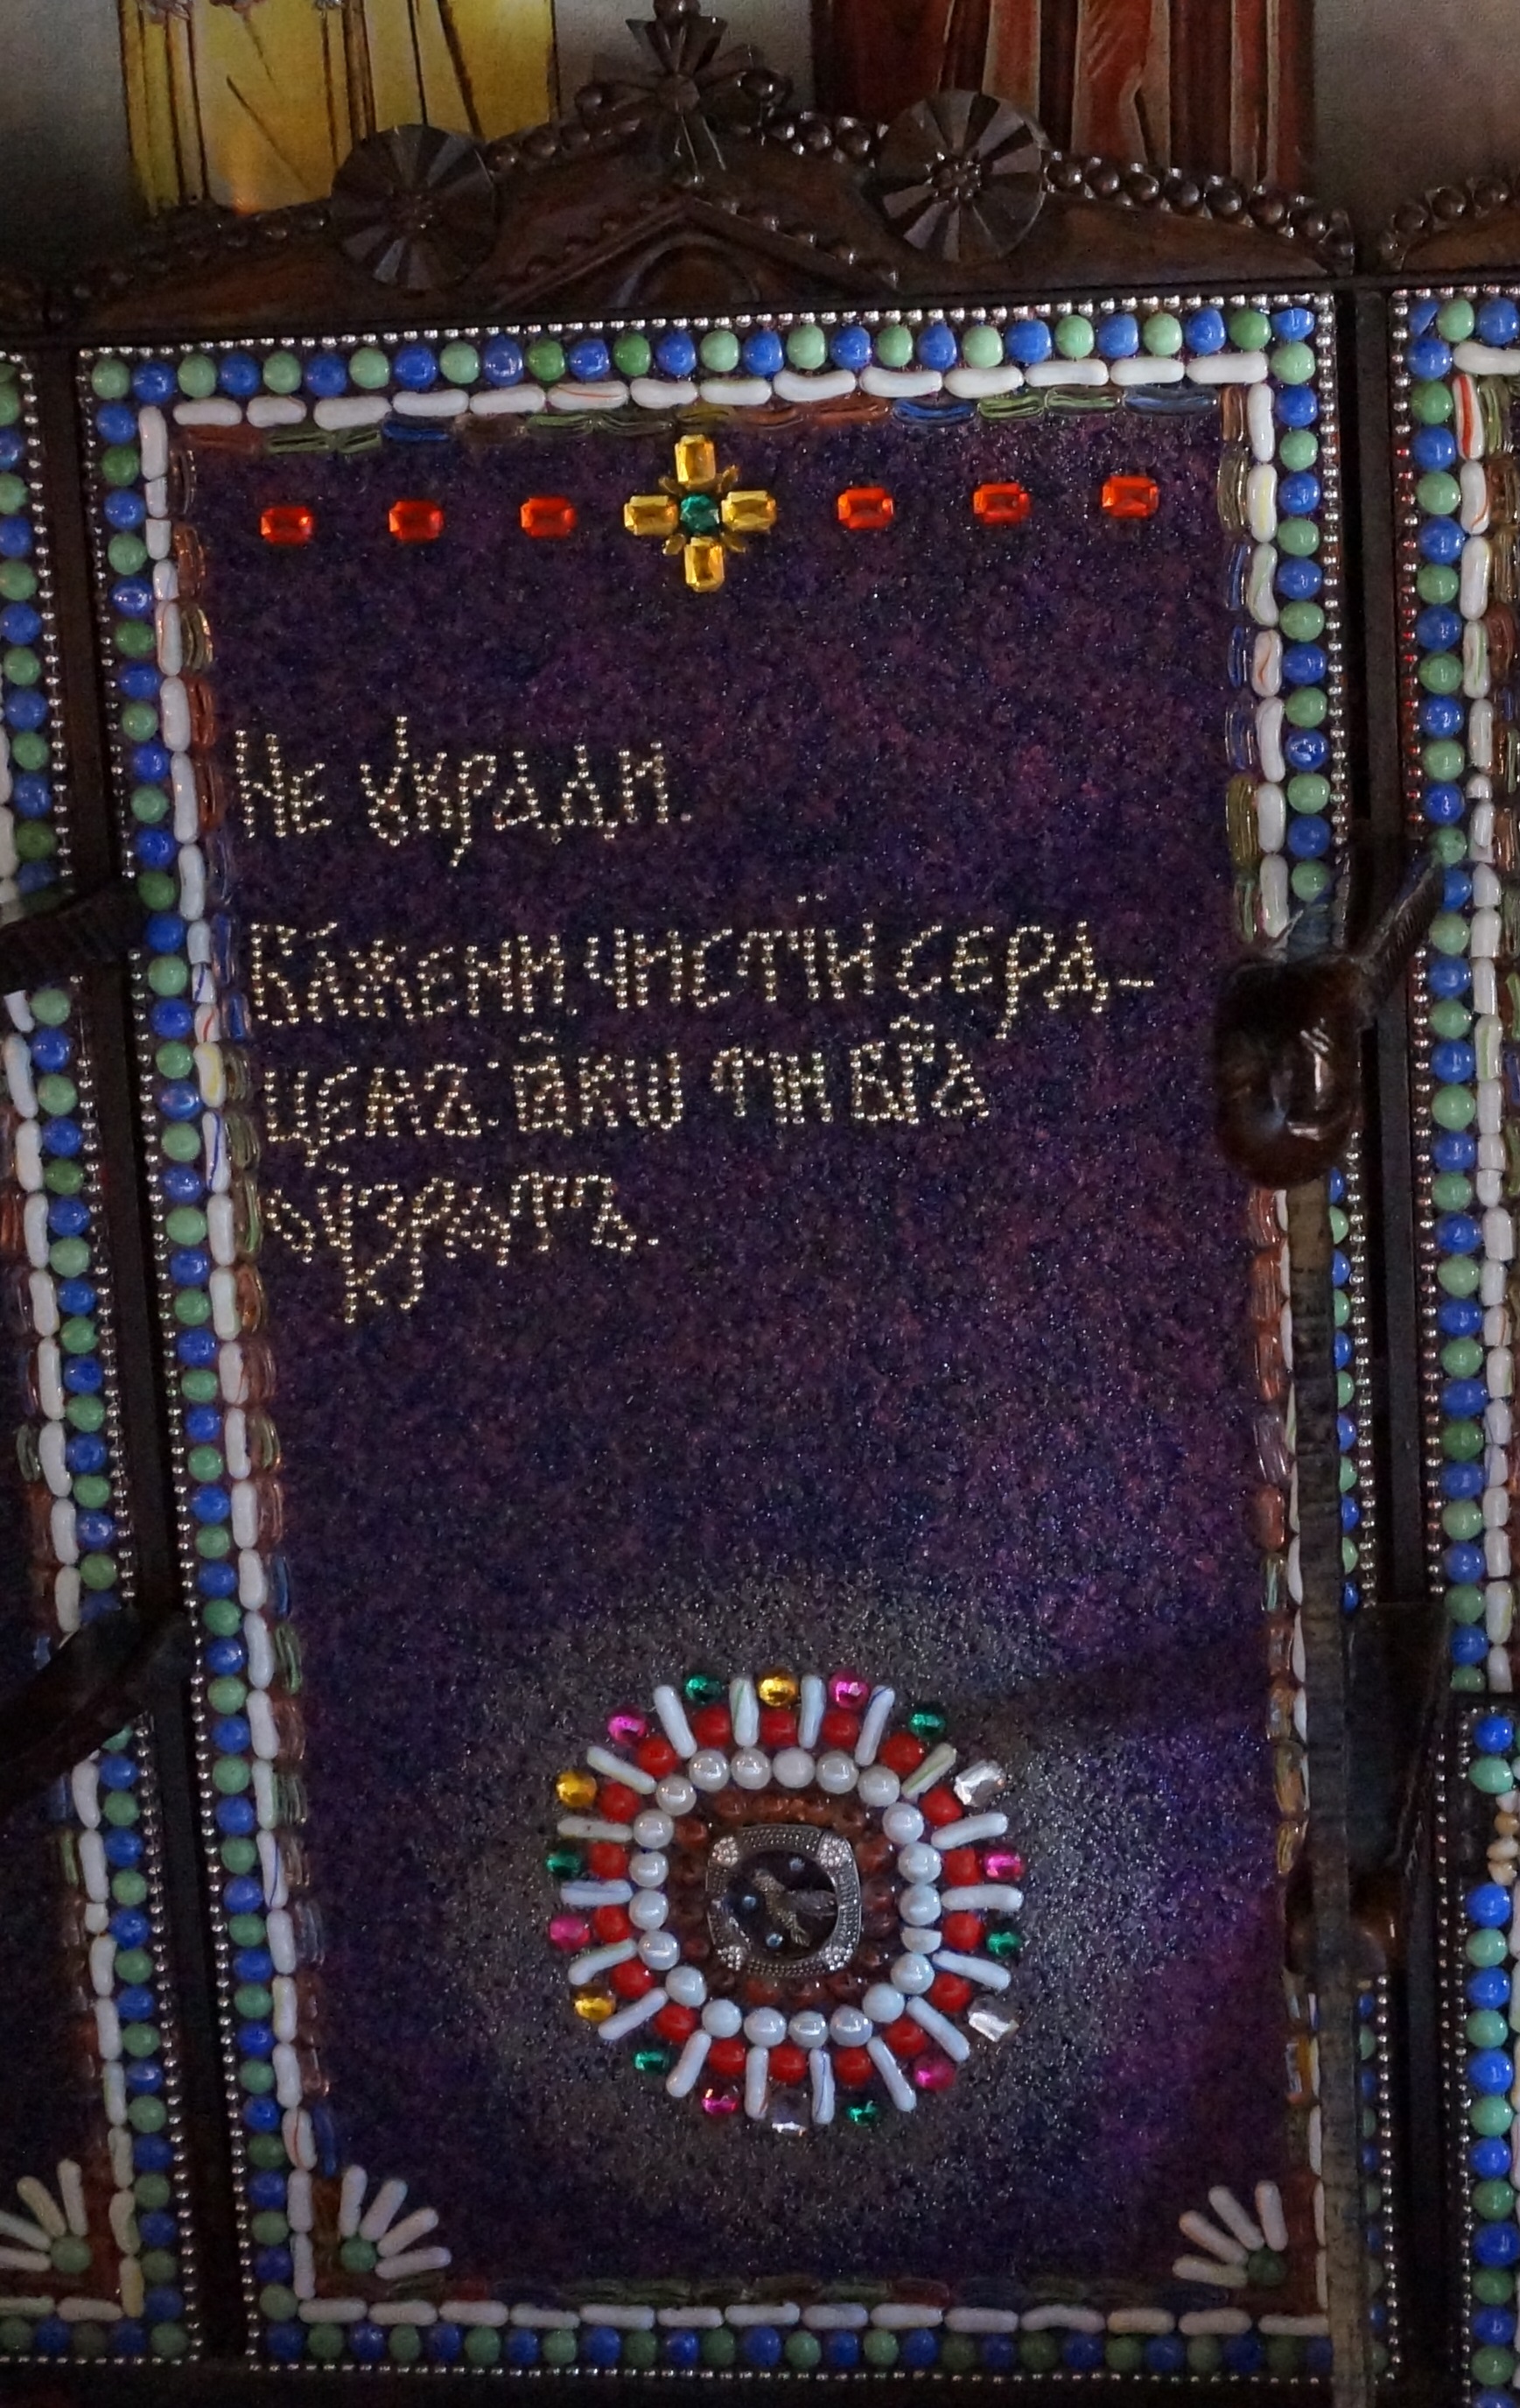 Не ꙋкради.
Бл҃жени чистїи серд-
цемъ: ꙗ҆кѡ тїи Бг҃а
ѹзрѧтъ.